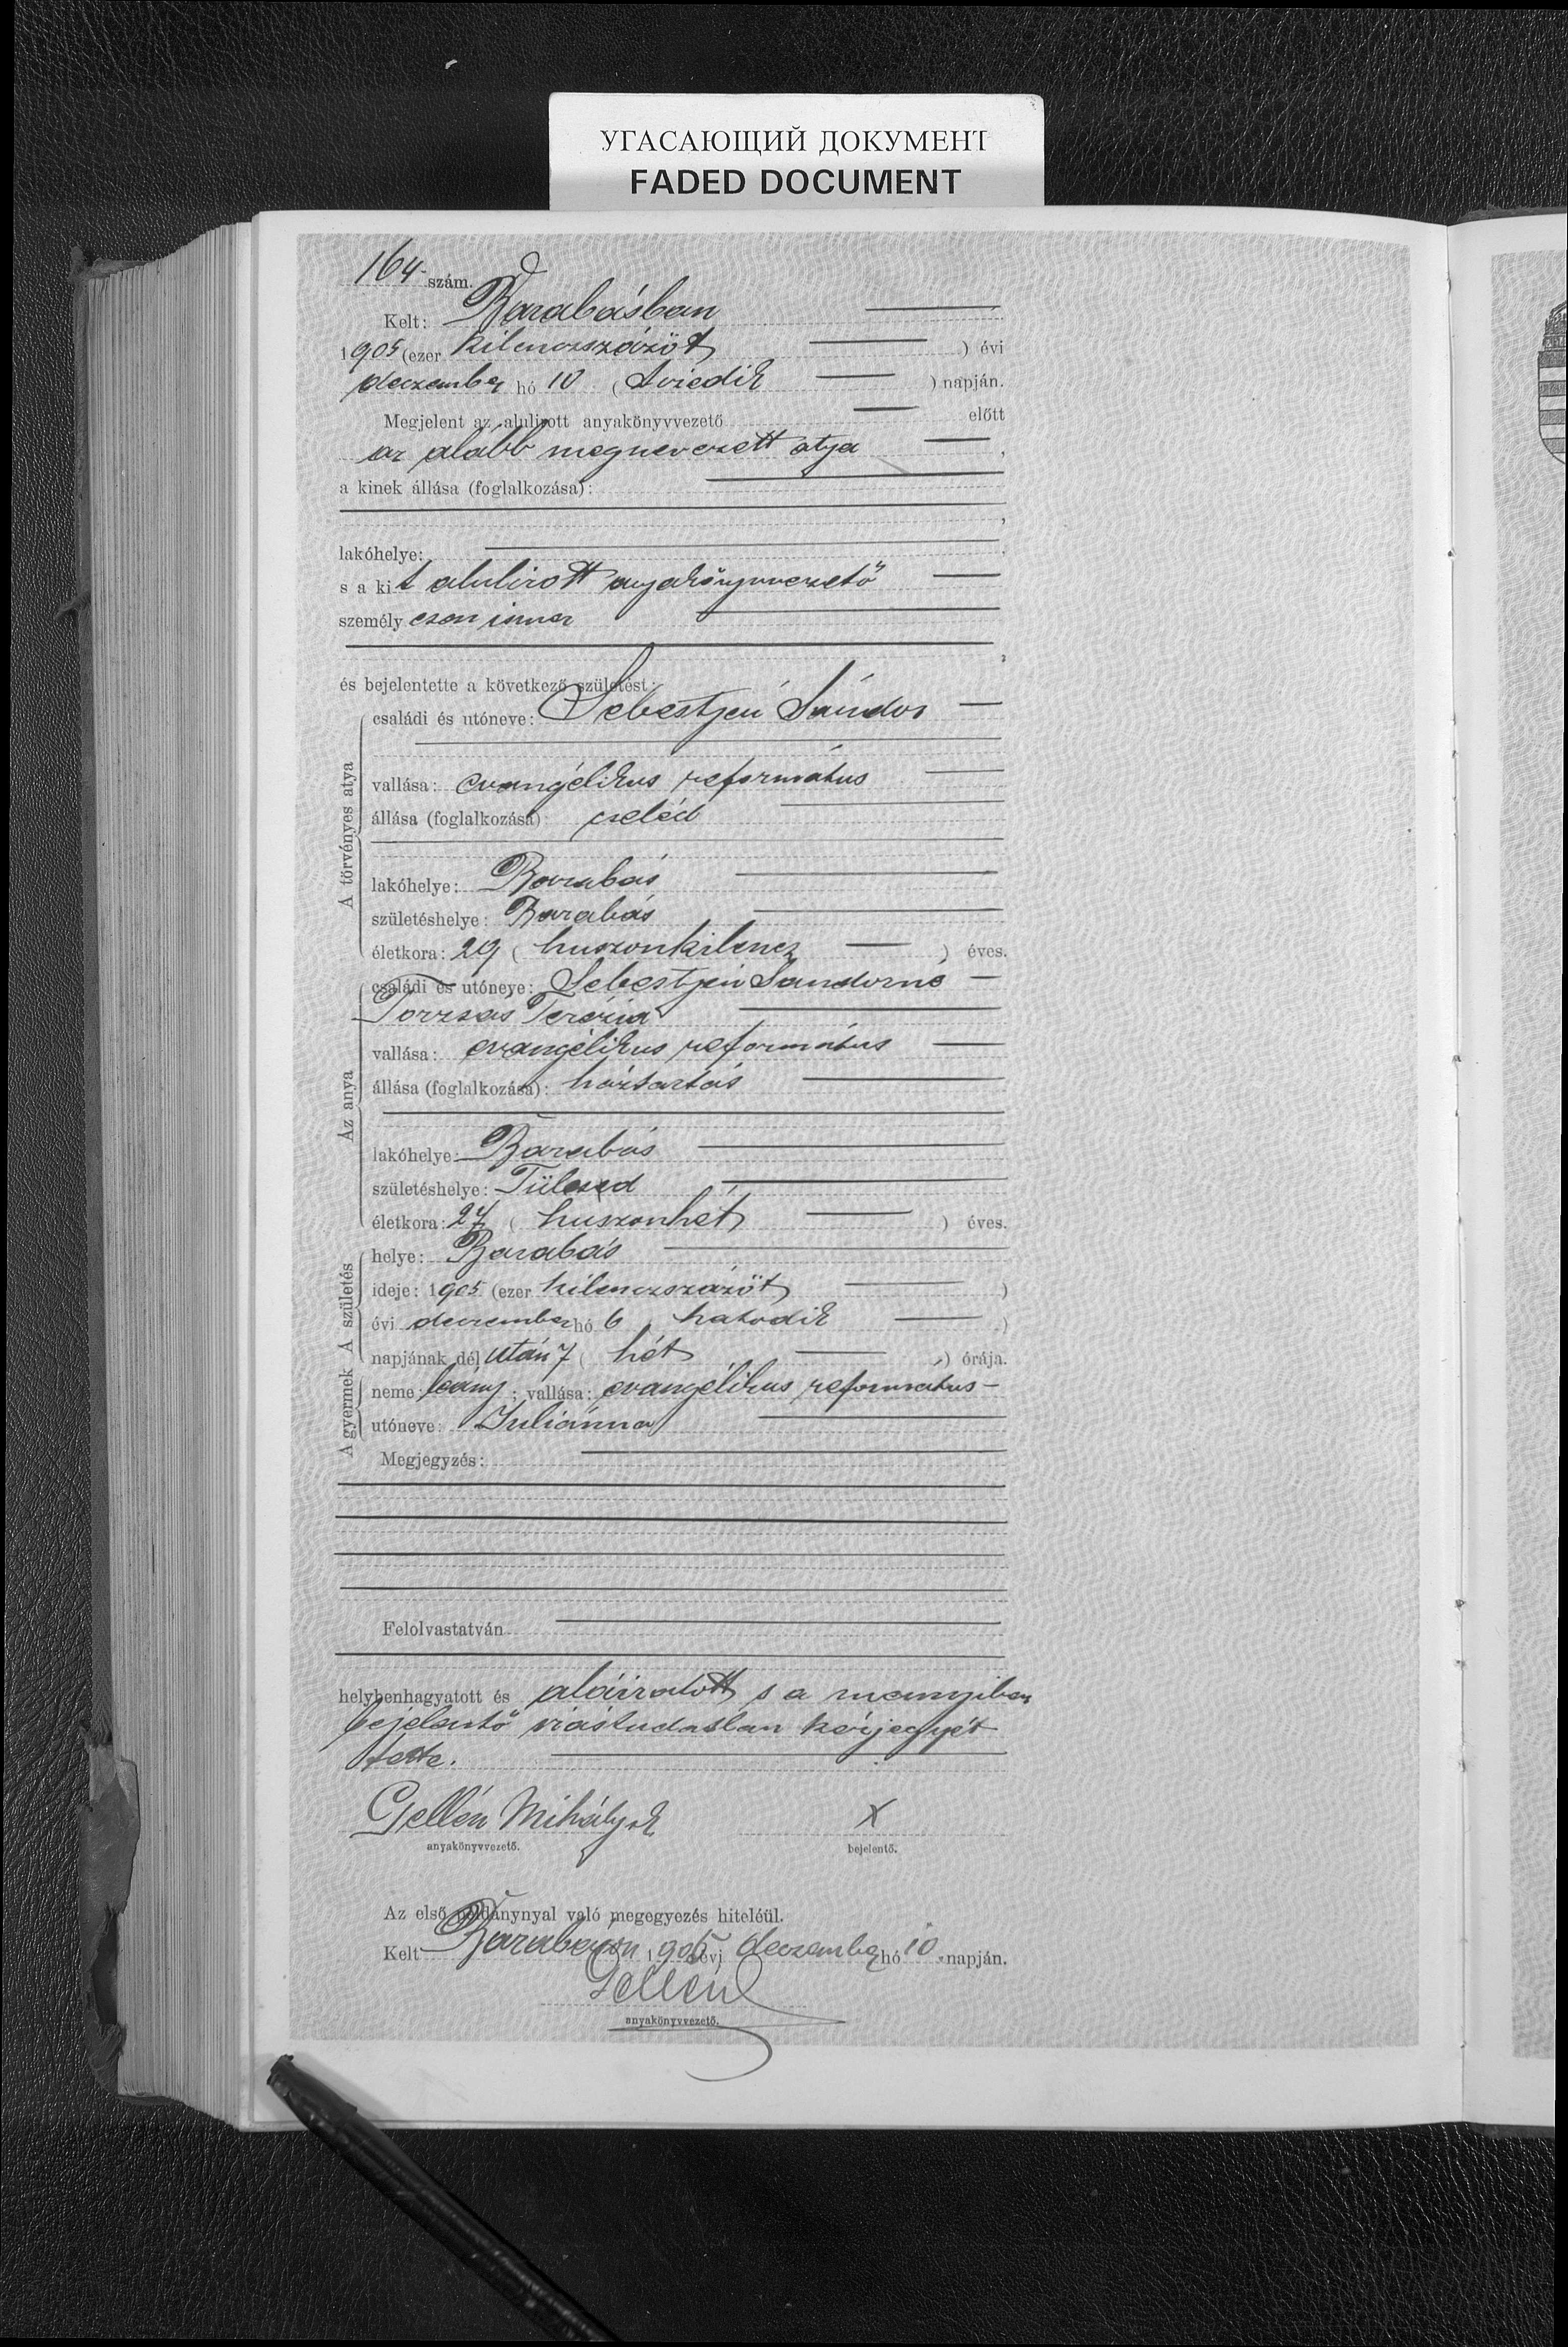 УГАСАЮЩИЙ ДОКУМЕНТ
FADED DOCUMENT
164 szám.
Kelt: Barabásban
1905 (ezer kilenczszázöt ) évi
deczember hó 10 ( tizedik ) napján.
Megjelent az alulirott anyakönyvvezető előtt
az alább megnevezett atya ,
a kinek állása (foglalkozása):
,
lakóhelye: ,
s a kit alulirott anyakönyvvezető
személy esen ismer
,
és bejelentette a következő születést:
A törvényes atya
családi és utóneve: Sebestyén Sándor
vallása: evangélikus református
állása (foglalkozása): cseléd
lakóhelye: Barabás
születéshelye: Barabás
életkora: 29 ( huszonkilencz ) éves.
Az anya
családi és utóneve: Sebestyén Sándorné
Terézia
vallása: evangélikus református
állása (foglalkozása): háztartás
lakóhelye: Barabás
születéshelye:
életkora: 27 ( huszonhét ) éves.
A születés
helye: Barabás
ideje: 1905 (ezer kilenczszázöt )
évi deczember hó 6 hatodik )
napjának dél után 7 ( hét ) órája.
A gyermek
neme: leány; vallása: evangélikus református
utóneve: Juliánna
Megjegyzés:
Felolvastatván
helybenhagyatott és aláiratott s a mennyiben
bejelentő irástudatlan kézjegyét
tette.
Gellén Mihály X
anyakönyvvezető. bejelentő.
Az első példánynyal való megegyezés hiteléül.
Kelt 1905 évi deczember hó 10 napján.
Gellén
anyakönyvvezető.